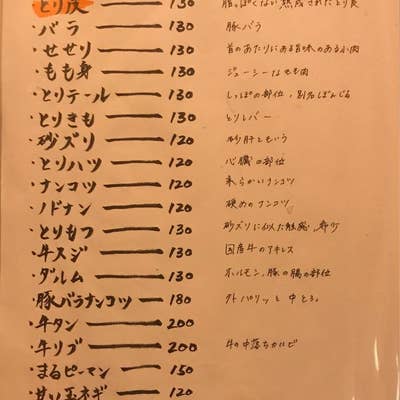 とり皮 130 脂っぽくない熟成されたとり皮
・バラ 130 豚バラ
・せせり 130 首のあたりにある旨味のある小肉
・もも身 130 ジューシーなもも肉
・とりテール 130 しっぽの部位、別名ぼんじり
・とりきも 130 とりレバー
・砂ズリ 120 砂肝ともいう
・とりハツ 120 心臓の部位
・ナンコツ 120 柔らかいナンコツ
・ノドナン 120 硬めのナンコツ
・とりもつ 130 砂ズリに似た触感、
・牛スジ 130 国産牛のアキレス
・ダルム 130 ホルモン、豚の腸の部位
・豚バラナンコツ 180 外パリッと 中とろ。
・牛タン 200
・牛リブ 200 牛の中落ちカルビ
・まるピーマン 150
・甘い玉ネギ 120